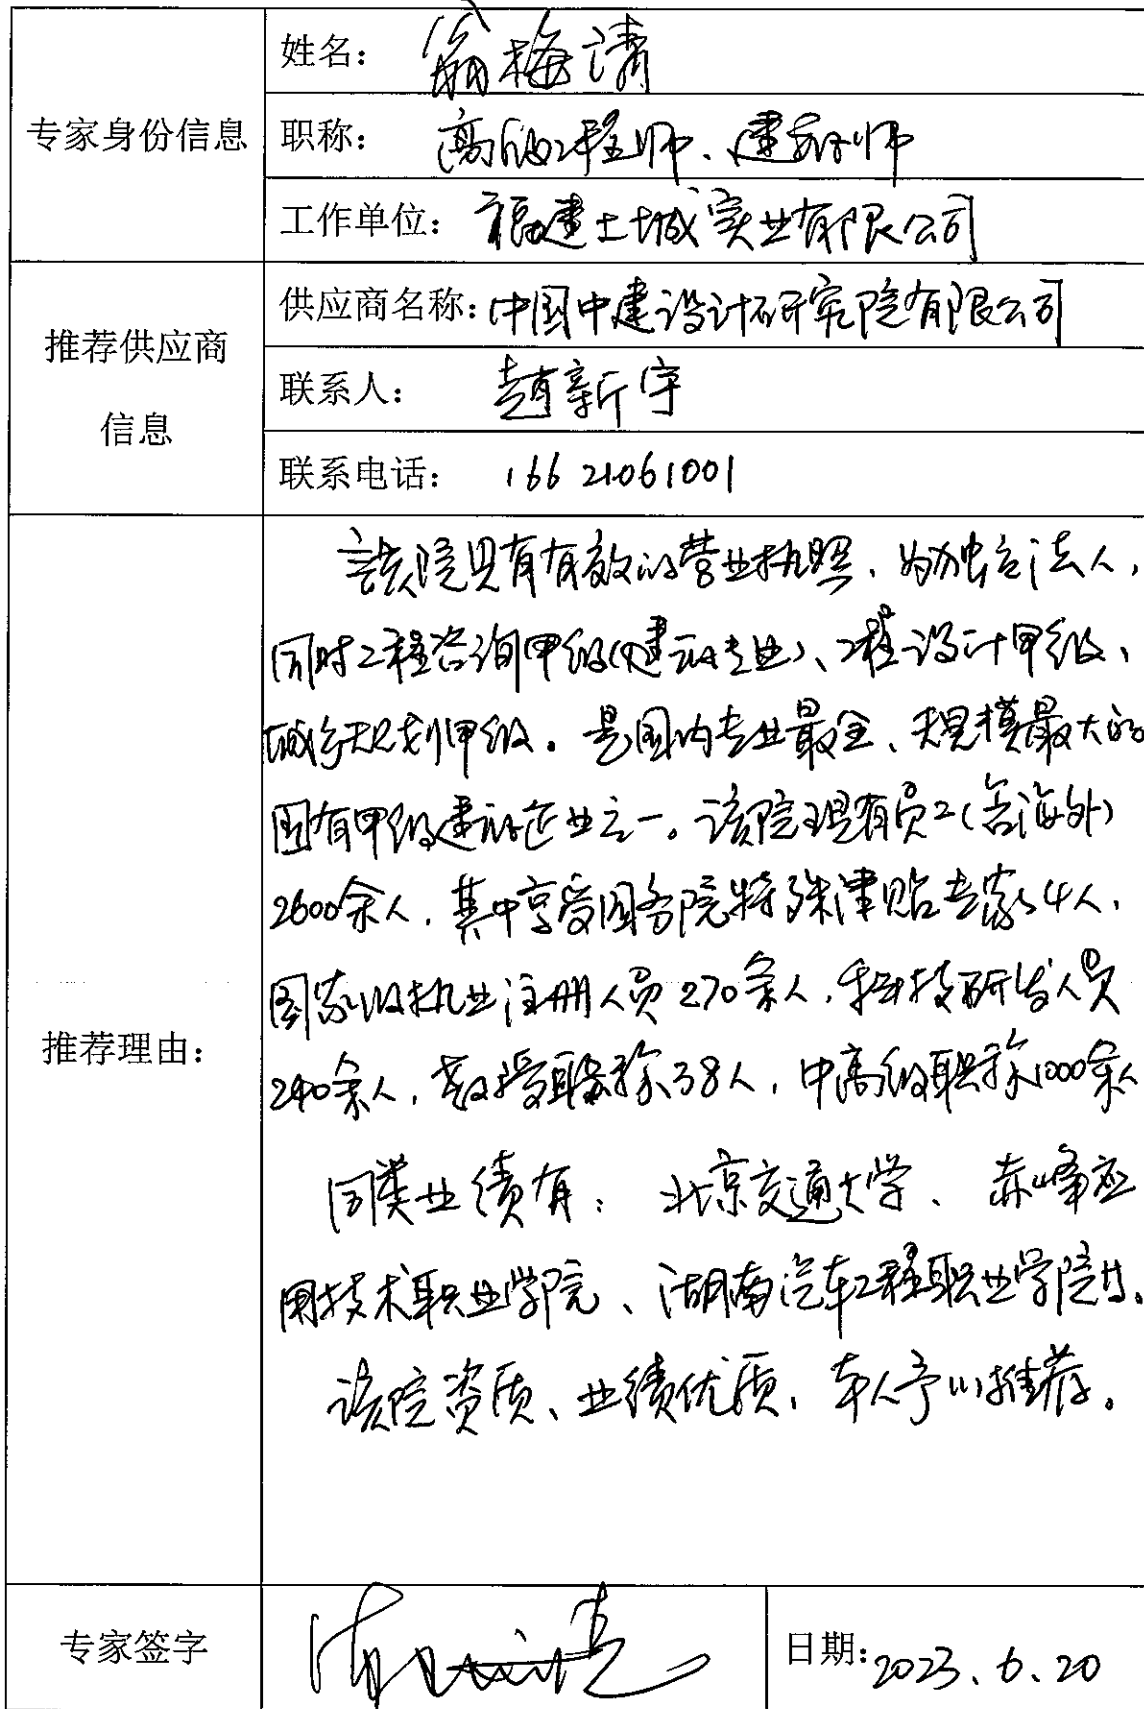 专家身份信息
姓名：翁梅清
职称：高级工程师、建筑师
工作单位：福建土城实业有限公司
推荐供应商
信息
供应商名称：中国中建设计研究院有限公司
联系人：赵新宇
联系电话：16621061001
推荐理由：
該院具有有效的营业执照、为独立法人，
同时工程咨询甲级（建筑专业）、工程设计甲级、
城乡规划甲级。是国内专业最全、规模最大的
国有甲级建筑企业之一。该院现有员工（含海外）
2600余人，其中享受国务院特殊津贴专家4人，
国家级执业注册人员270余人，科技研发人员
240余人，教授职称38人，中高级职称1000余人
同类业绩有：北京交通大学、赤峰应
用技术职业学院、湖南汽车工程职业学院等。
该院资质、业绩优质，本人予以推荐。
专家签字
日期：2023.6.20